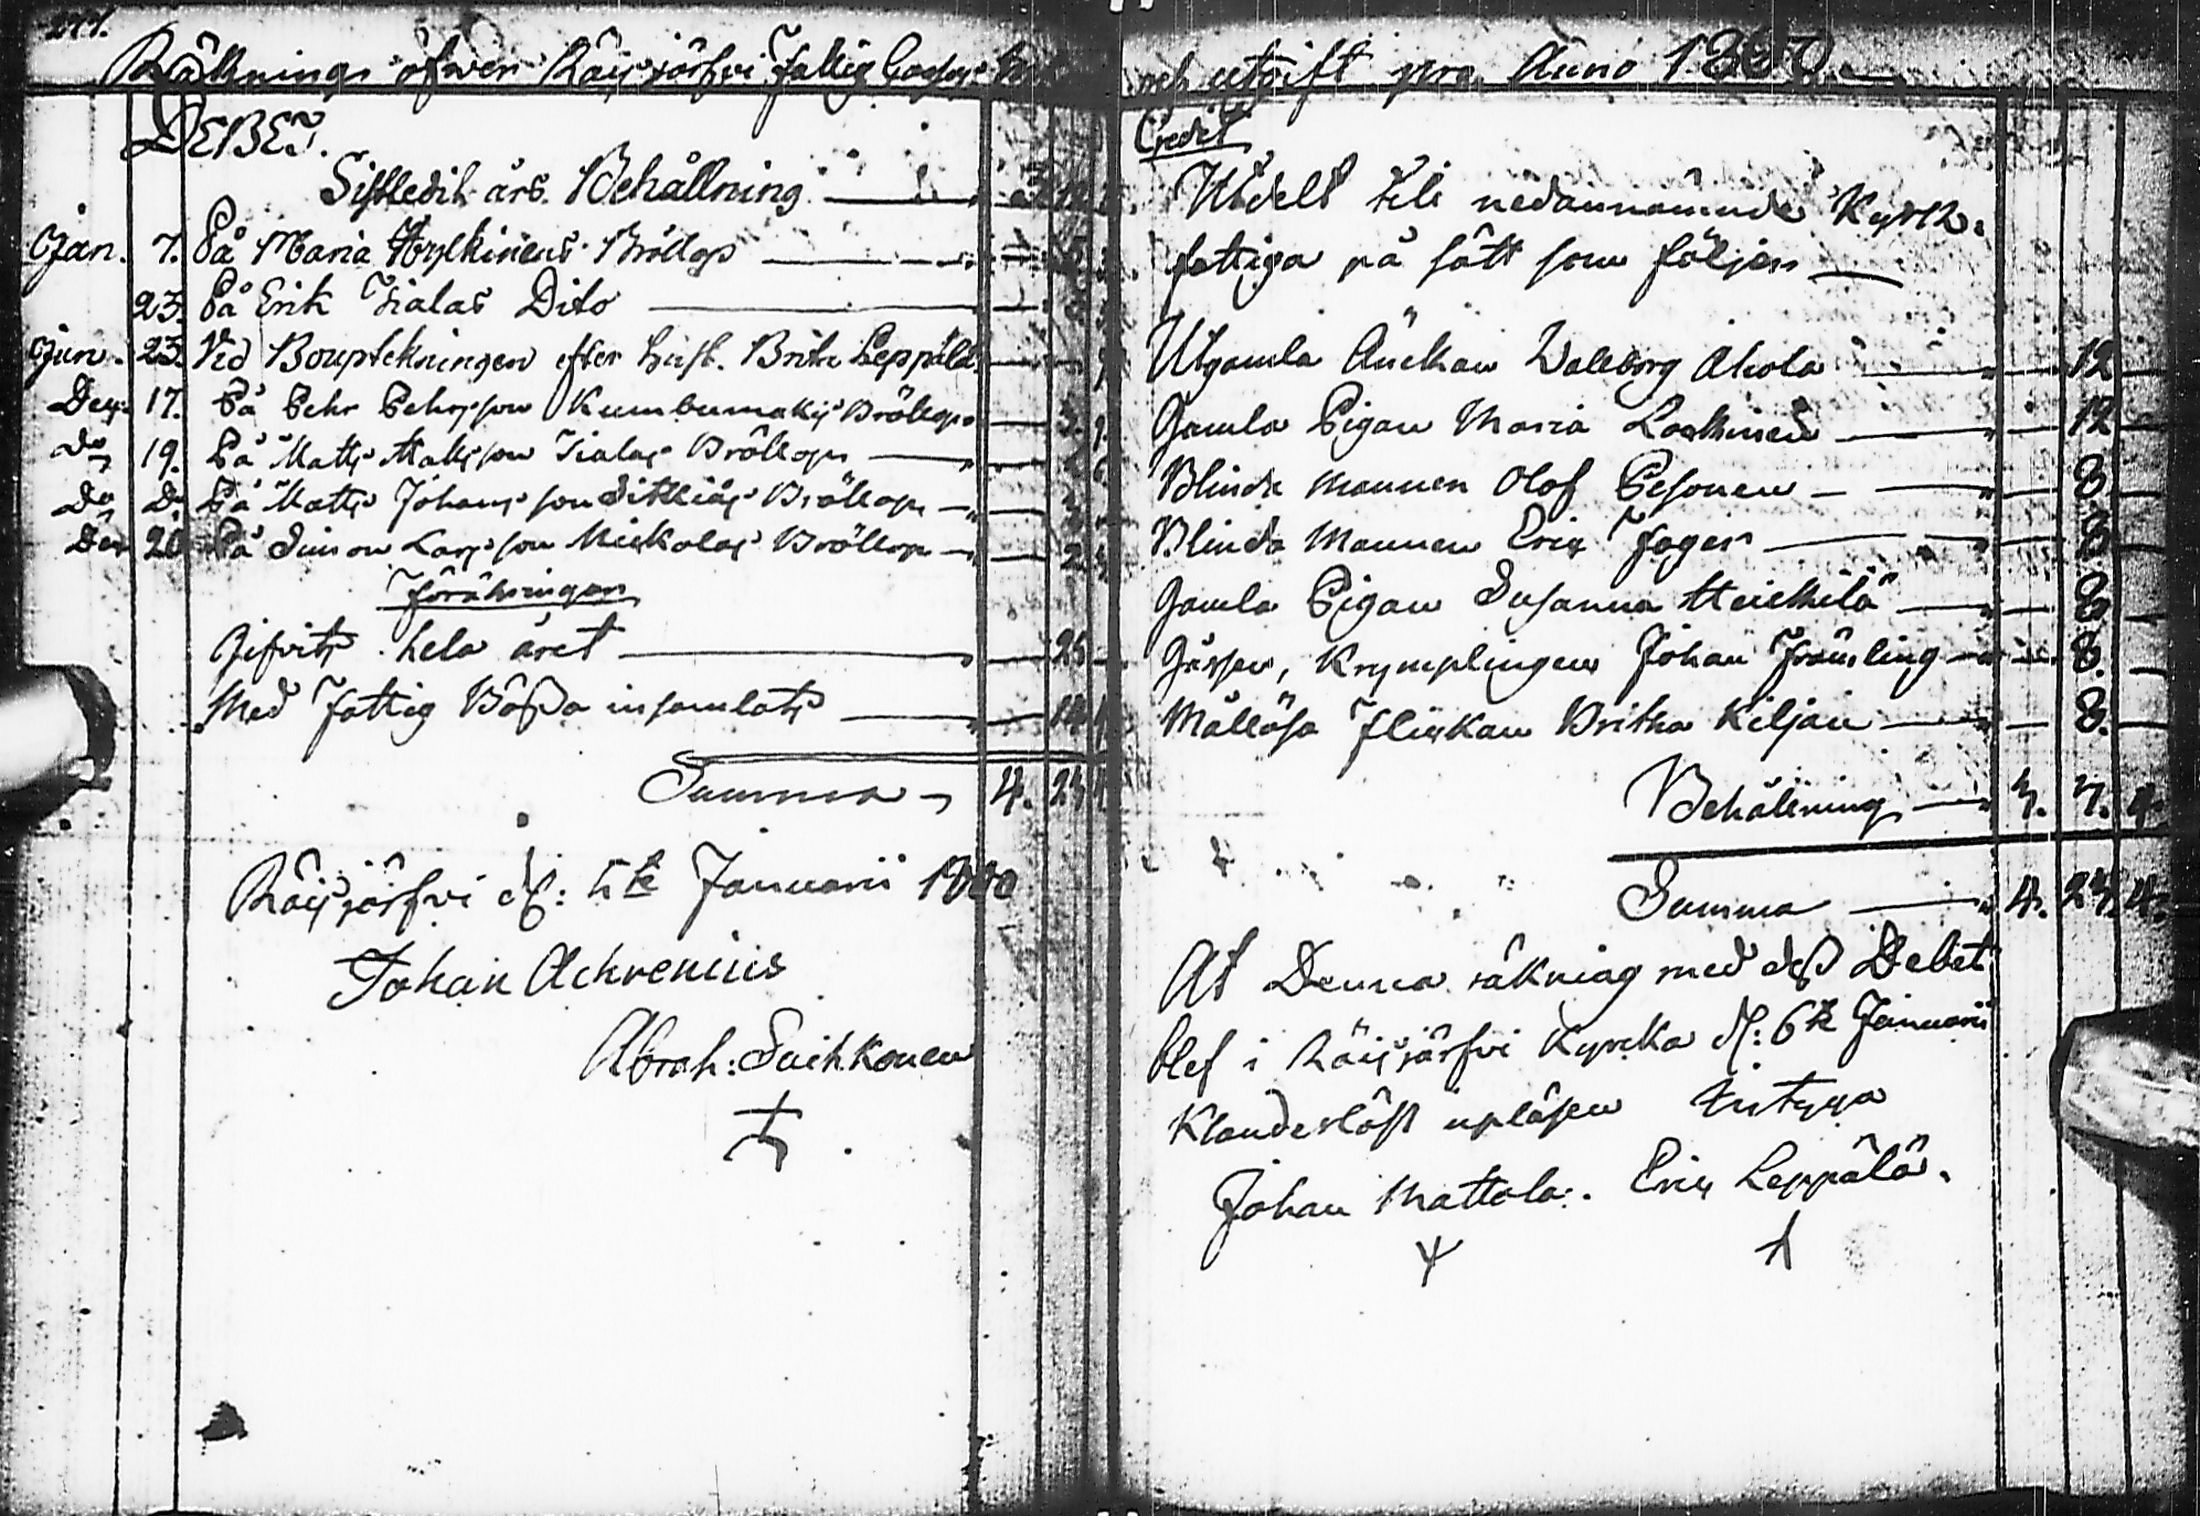 Räkning öfwer Räisjärfvi Fattig Cassas
DEBET.
Sistledit års Behållning
Jan. 7. På Maria Hylkinens Bröllop
23. På Erik Tialas Dito
Jun. 23. Vid Bouptekningen efter hust. Brita Leppälä
Dec. 17. På Pehr Pehrsson Kumbumakis Bröllop 3.
Do 19. På Matts Mattsson Tialas Bröllop
Do Do På Matts Johansson Bröllop
Dec 20 På Simon Larsson Niskalas Bröllop 2
Förähringar
Gifvits hela året 25
Med Fattig Bössa insamlats
Summa 4. 23
Räisjärfvi d: 5te Januarii 1800
Johan Achrenius
Abrah: Suihkonen
och utgift pro Anno
Credit
Utdelt till nedannämnde Kyrko-
fattiga på sätt som följer
Utgamla Änckan Walborg Ahola 12
Gamla Pigan Maria 12
Blinda mannen Olof Pesonen 8
Blinda Mannen Eric Fager 8
Gamla Pigan Susanna Heickilä 8
Gåssen, Krymplingen Johan Främling 8.
Mållösa Flickan Britha Kiljan 8.
Behållning 3. 7. 4
Summa 4. 23. 4.
At Denna räkning med dess Debet
blef i Räisjärfvi Kyrcka d: 6te Januarii
Klanderlöst upläsen intyga
Johan Mattola. Eric Leppälä.